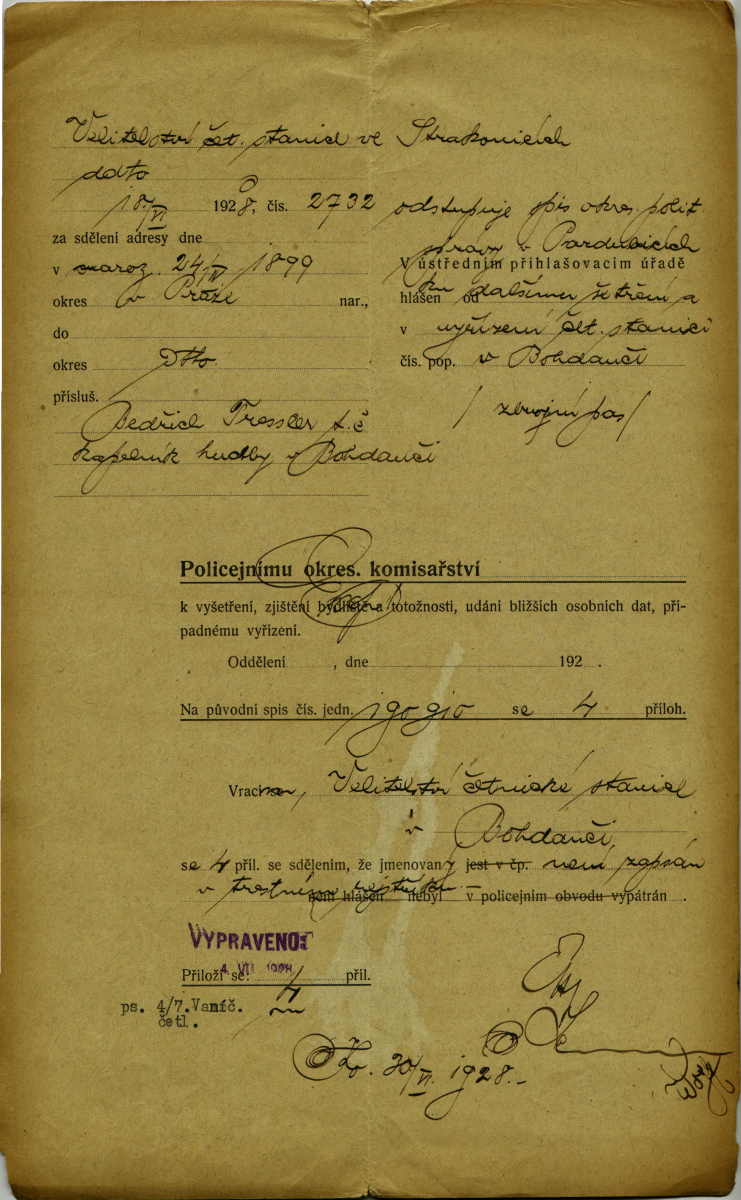 Velitelství čet. stanice ve Strakonicích
ddto
18/VI 1928, čís. 2732 odstupuje spis okres. polit.
za sdělení adresy dne
správy v Pardubicích
v naroz. 24/IV 1899
V ústředním přihlašovacím úřadě
okres v Praze nar.,
hlášen od ku dalšímu šetření a
do
v vyřízení čet. stanici
okres Dtto.
čís. pop. v Bohdanči
přísluš.
Bedřich Tressler t. č.
/ zbrojní pas /
kapelník hudby v Bohdanči
Policejnímu okres. komisařství
k vyšetření, zjištění bydliště a totožnosti, udání bližších osobních dat, pří-
padnému vyřízení.
Oddělení , dne 192 .
Na původní spis čís. jedn. 190910 se 4 příloh.
Vrací se, Velitelství četnické stanice
v Bohdanči
se 4 příl. se sdělením, že jmenovaný jest v čp. není zapsán
v trestním rejstříku. –
není hlášen nebyl v policejním obvodu vypátrán .
VYPRAVENO:
4. VII. 1928
Přiloží se: 4 příl.
ps. 4/7. Vaníč.
četl.
30/VI. 1928.–